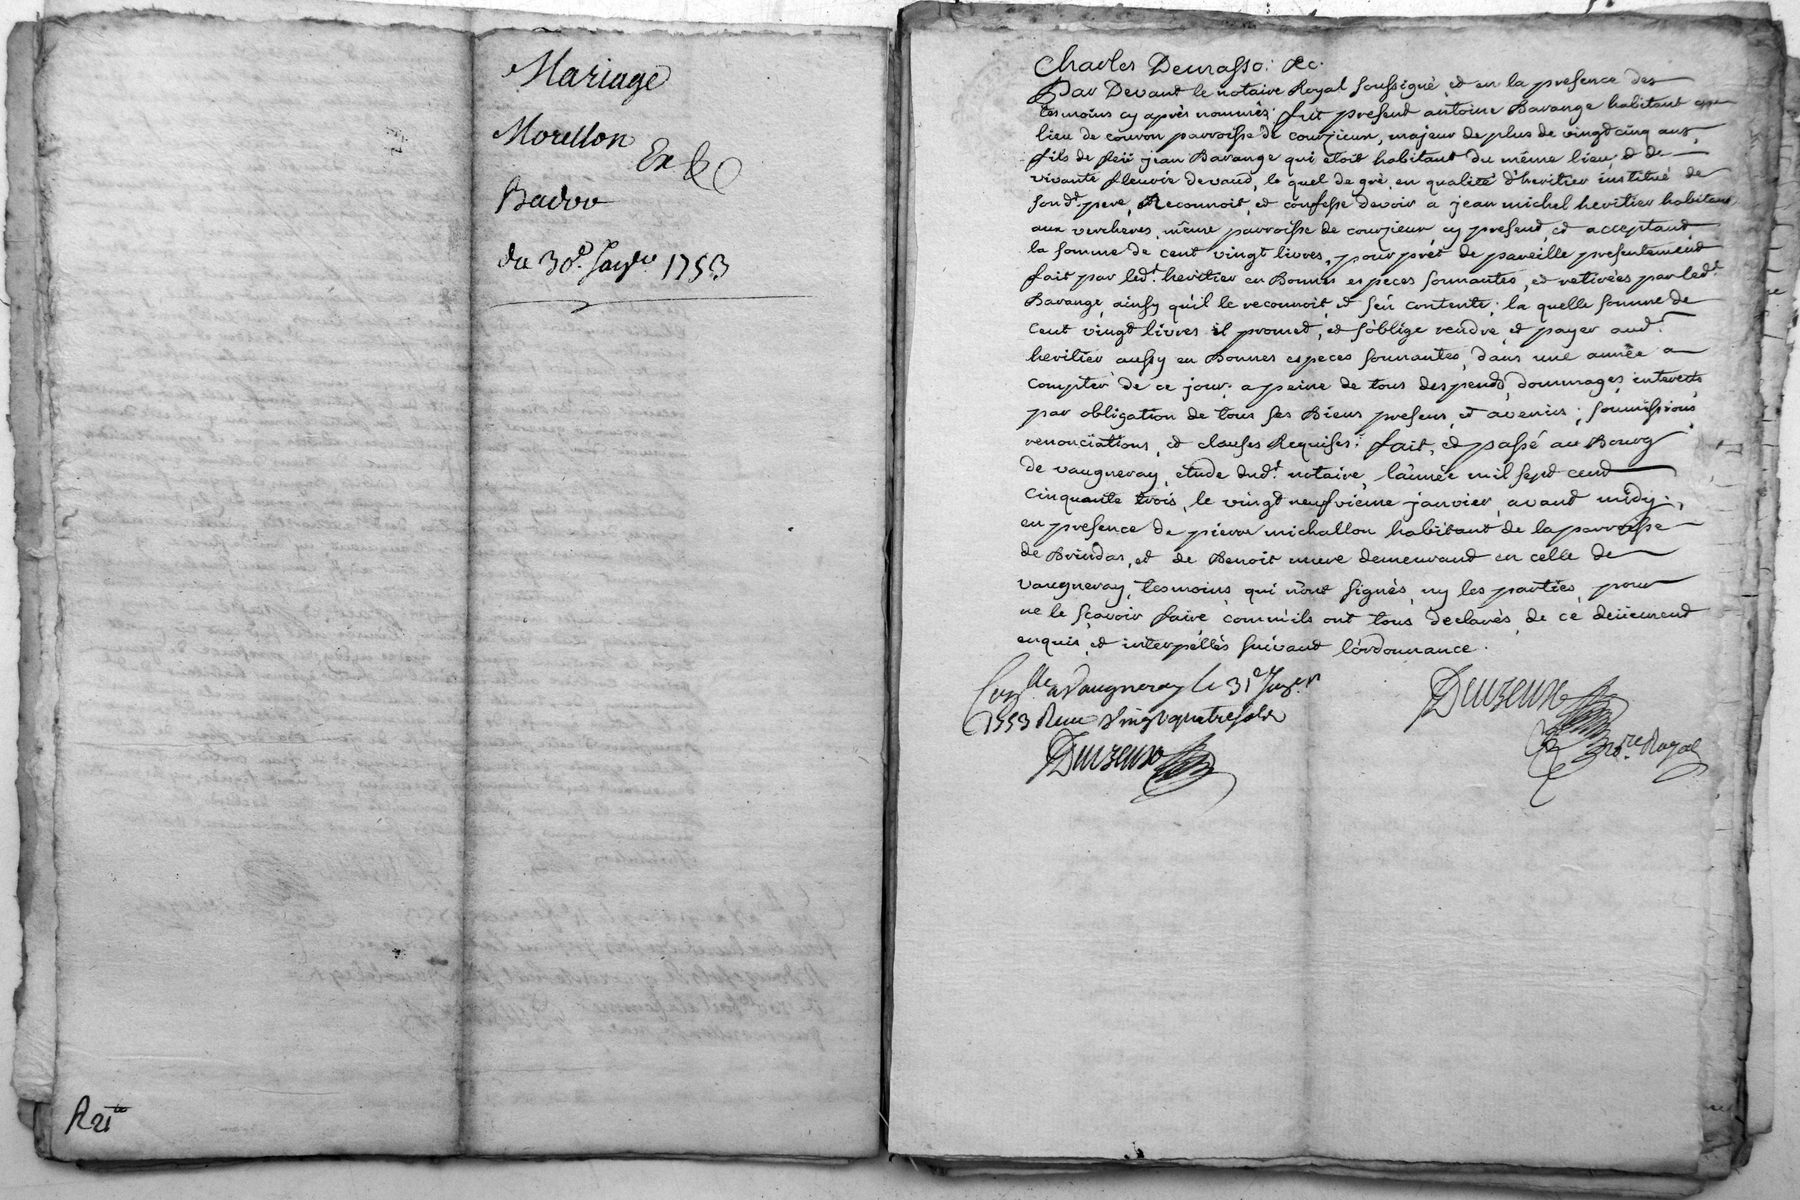 Mariage
Morellon
Ex
Badoo
du 30e. Janver 1753
R 21te
Charles Demasso: &c.
Par Devant le notaire Royal soussigné et en la presence des
tesmoins cy après nommés; fut present antoine Barange habitant au
lieu de couron parroisse de courzieux, majeur de plus de vingt cinq ans,
fils de feü jean Barange qui étoit habitant du même lieu, et de
vivante fleurie devaud, le quel de gré, en qualité d'heritier institué de
sond. pere, Reconnoit, et confesse devoir a jean michel heritier habitant
aux vercheres, même parroisse de courzieux cy present, et acceptant
la somme de cent vingt livres, pour prét de pareille presentement
fait par led.t heritier en Bonnes especes sonnantes, et retirées par led.t
Barange, ainsy qu'il le reconnoit et s'en contente; la quelle somme de
cent vingt livres il promet, et s'oblige rendre, et payer aud.t
heritier aussy en Bonnes especes sonnantes, dans une année a
compter de ce jour; a peine de tous despends, dommages, interests
par obligation de tous ses Biens presens, et avenir; soumissions,
renonciations, et clauses Requises; fait, et passé au Bourg
de vaugneray, etude dud.t notaire, l'année mil sept cent
cinquante trois, le vingt neufvieme janvier, avant midy;
en presence de pierre michallon habitant de la parroisse
de Brindas, et de Benoit mure demeurant en celle de
vaugneray, tesmoins qui n'ont signés, ny les parties, pour
ne le sçavoir faire comm'ils ont tous declarés, de ce deüement
enquis, et interpellés suivant l'ordonnance.
Con.lle a Vaugneray le 31e Janver
1753 Reçu vingt quatre sols
Deuzeux
Deuzeux
No.re Royal